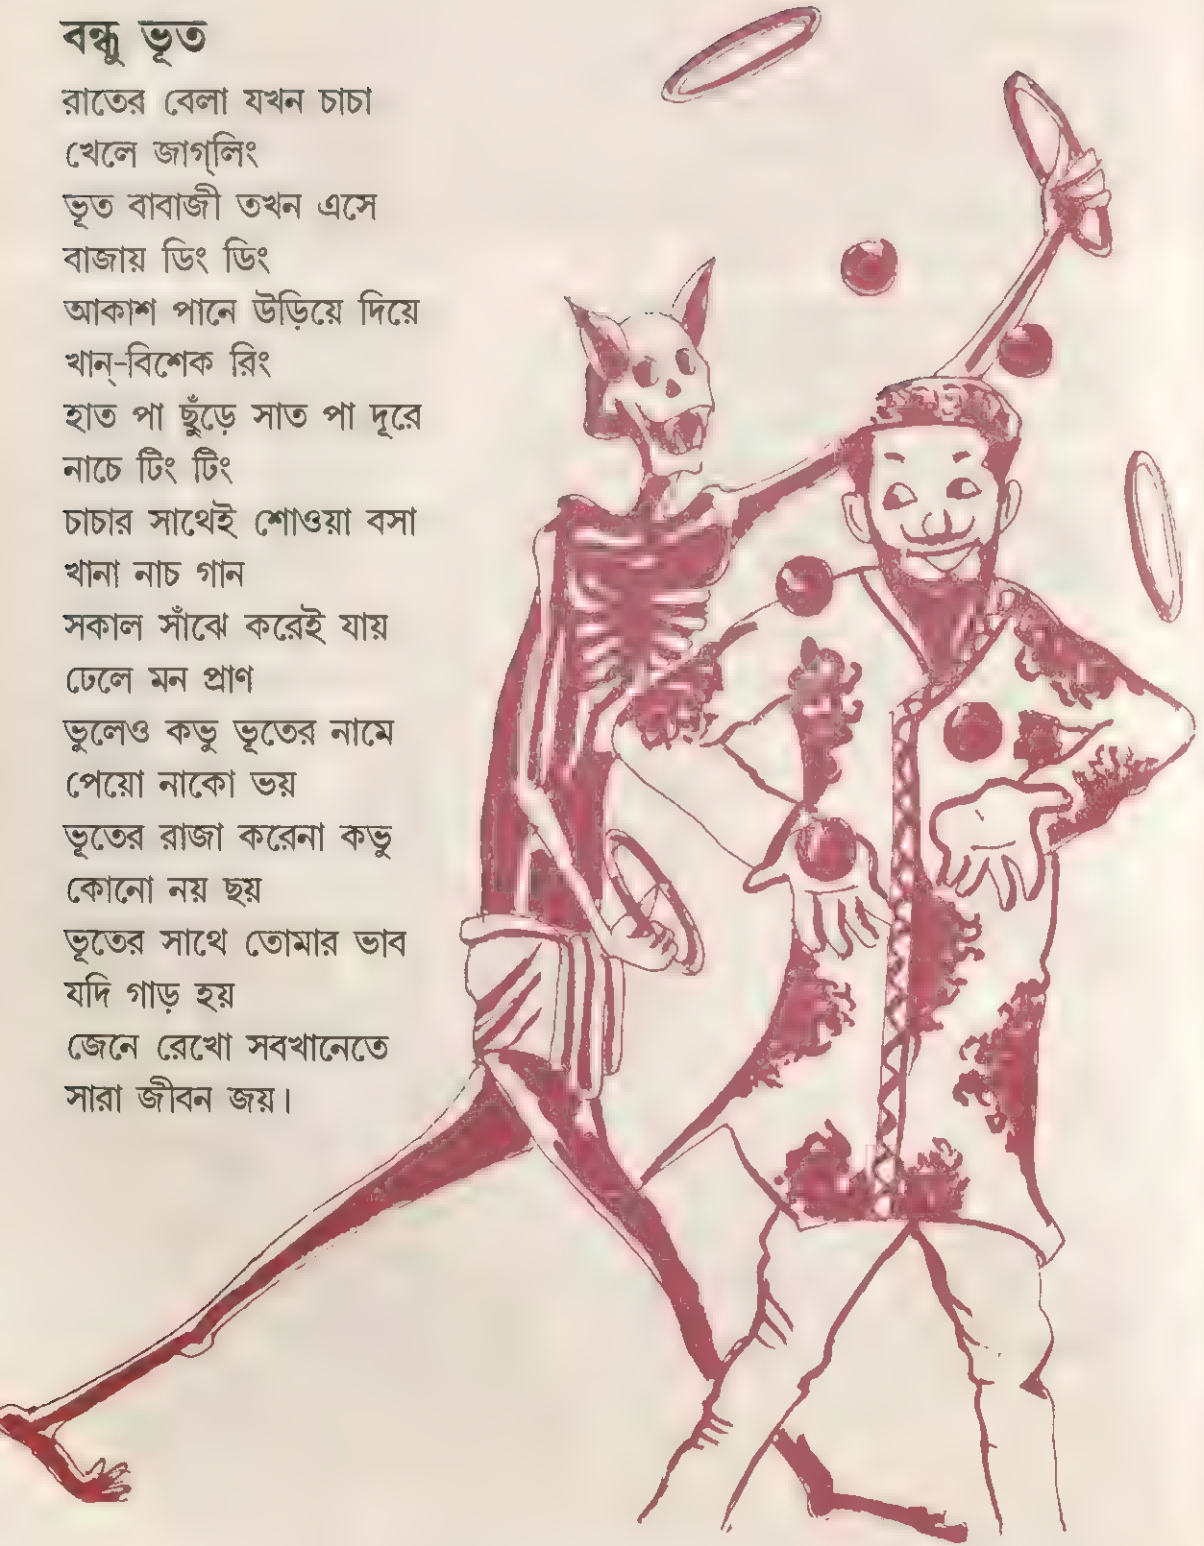 বন্ধু ভূত
রাতের বেলা যখন চাচা
খেলে জাগ্‌লিং
ভূত বাবাজী তখন এসে
বাজায় ডিং ডিং
আকাশ পানে উড়িয়ে দিয়ে
খান্‌-বিশেক রিং
হাত পা ছুঁড়ে সাত পা দূরে
নাচে টিং টিং
চাচার সাথেই শোওয়া বসা
খানা নাচ গান
সকাল সাঁঝে করেই যায়
ঢেলে মন প্রাণ
ভুলেও কভু ভূতের নামে
পেয়ো নাকো ভয়
ভূতের রাজা করেনা কভু
কোনো নয় ছয়
ভূতের সাথে তোমার ভাব
যদি গাড় হয়
জেনে রেখো সবখানেতে
সারা জীবন জয়।